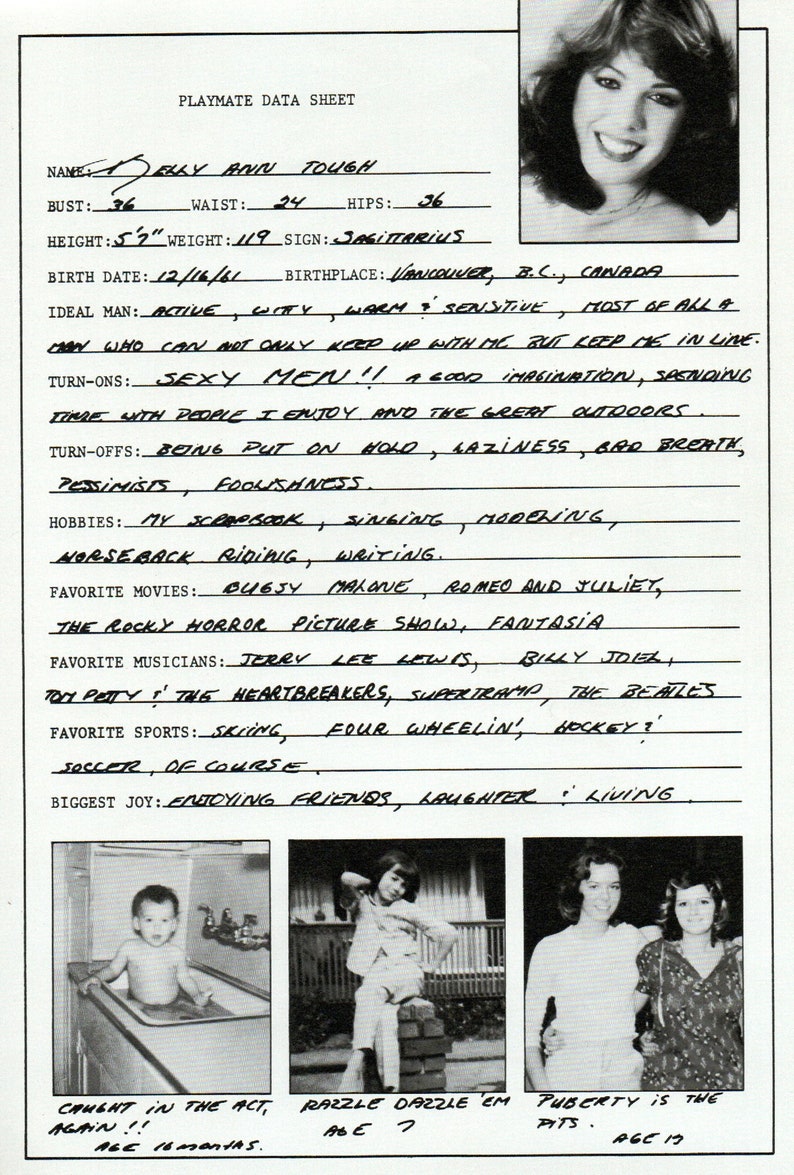 PLAYMATE DATA SHEET
NAME: KELLY ANN TOUGH
BUST: 36 WAIST: 24 HIPS: 36
HEIGHT: 5'7" WEIGHT: 119 SIGN: SAGITTARIUS
BIRTH DATE: 12/16/61 BIRTHPLACE: VANCOUVER, B.C., CANADA
IDEAL MAN: ACTIVE, WITTY, WARM & SENSITIVE, MOST OF ALL A
MAN WHO CAN NOT ONLY KEEP UP WITH ME BUT KEEP ME IN LINE.
TURN-ONS: SEXY MEN!! A GOOD IMAGINATION, SPENDING
TIME WITH PEOPLE I ENJOY AND THE GREAT OUTDOORS.
TURN-OFFS: BEING PUT ON HOLD, LAZINESS, BAD BREATH,
PESSIMISTS, FOOLISHNESS.
HOBBIES: MY SCRAPBOOK, SINGING, MODELING,
HORSEBACK RIDING, WRITING.
FAVORITE MOVIES: BUGSY MALONE, ROMEO AND JULIET,
THE ROCKY HORROR PICTURE SHOW, FANTASIA
FAVORITE MUSICIANS: JERRY LEE LEWIS, BILLY JOEL,
TOM PETTY & THE HEARTBREAKERS, SUPERTRAMP, THE BEATLES
FAVORITE SPORTS: SKIING, FOUR WHEELIN', HOCKEY &
SOCCER, OF COURSE.
BIGGEST JOY: ENJOYING FRIENDS, LAUGHTER & LIVING.
CAUGHT IN THE ACT,
AGAIN!!
AGE 16 MONTHS.
RAZZLE DAZZLE 'EM
AGE 7
PUBERTY IS THE
PITS.
AGE